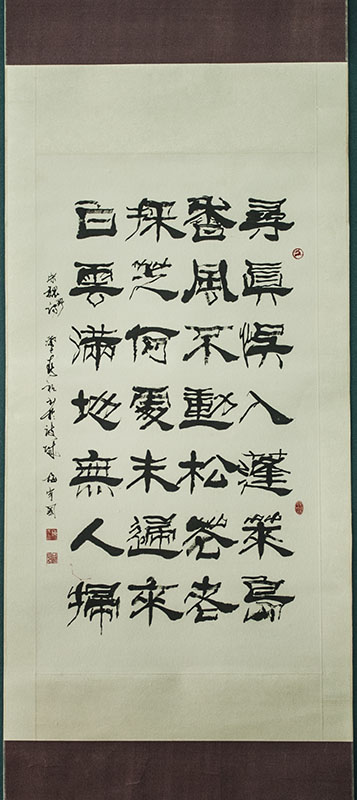 尋眞悞入蓬萊島
香風不動松花老
採芝何處未歸來
白雲滿地無人掃
宋魏野詩